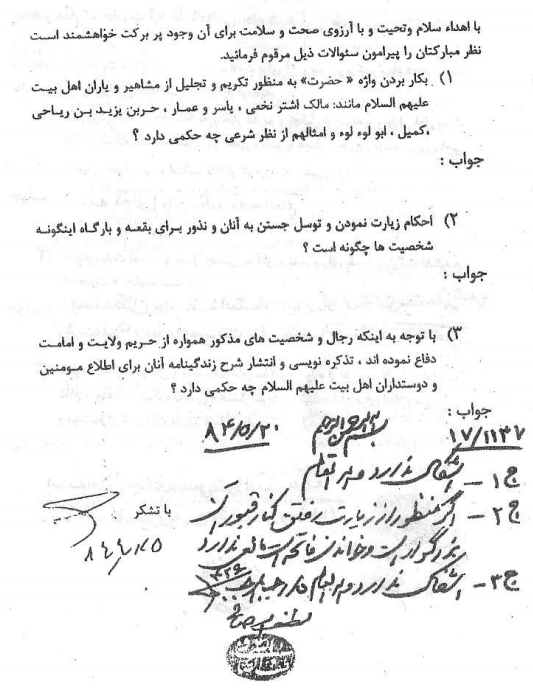 با اهداء سلام وتحیت و با آرزوی صحت و سلامت برای آن وجود پر برکت خواهشمند است
نظر مبارکتان را پیرامون سئوالات ذیل مرقوم فرمائید.
۱) بکار بردن واژه « حضرت» به منظور تکریم و تجلیل از مشاهیر و یاران اهل بیت
علیهم السلام مانند: مالک اشتر نخعی ، یاسر و عمار ، حربن یزید بن ریاحی
،کمیل ، ابو لوء لوء و امثالهم از نظر شرعی چه حکمی دارد ؟
جواب :
۲) احکام زیارت نمودن و توسل جستن به آنان و نذور برای بقعه و بارگاه اینگونه
شخصیت ها چگونه است ؟
جواب :
۳) با توجه به اینکه رجال و شخصیت های مذکور همواره از حریم ولایت و امامت
دفاع نموده اند ، تذکره نویسی و انتشار شرح زندگینامه آنان برای اطلاع مومنین
و دوستداران اهل بیت علیهم السلام چه حکمی دارد ؟
جواب :
۱۷/۱۱۳۷ بسم الله الرحمن الرحیم ۸۴/۵/۲۰
ج۱- اشکالی ندارد والله العالم
ج۲- اگر منظور از زیارت رفتن کنار قبور آن
بزرگوار است و خواندن فاتحه است مانعی ندارد
با تشکر
ج۳- اشکالی ندارد والله العالم